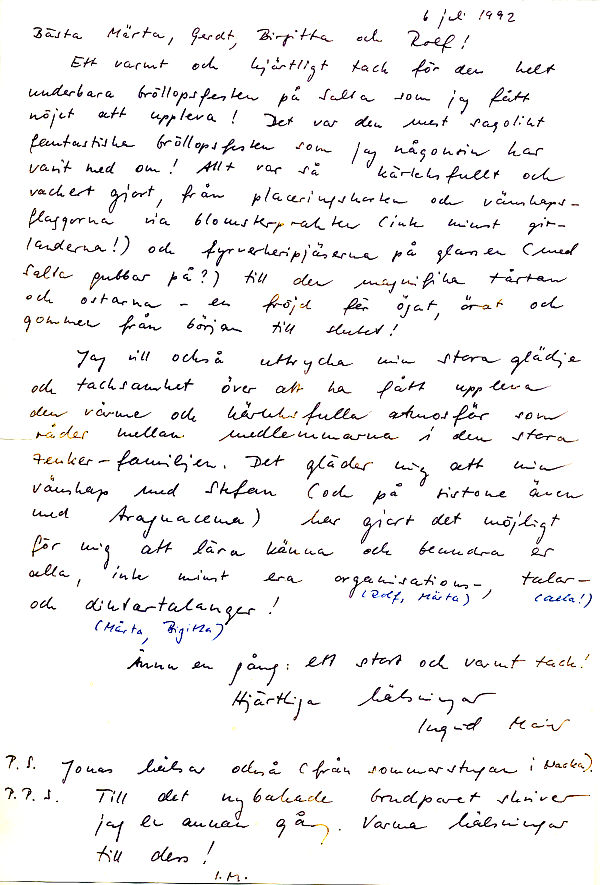 6 juli 1992
Bästa Märta, Gerdt, Birgitta och Rolf!
Ett varmt och hjärtligt tack för den helt
underbara bröllopsfesten på Salta som jag fått
nöjet att uppleva! Det var den mest sagolikt
fantastiska bröllopsfesten som jag någonsin har
varit med om! Allt var så kärleksfullt och
vackert gjort, från placeringskorten och vänskaps-
flaggorna via blomsterprakten (inte minst gir-
landerna!) och fyrverkeripjäserna på glassen (med
Salta gubbar på?) till den magnifika tårtan
och ostarna - en fröjd för ögat, örat och
gommen från början till slutet!
Jag vill också uttrycka min stora glädje
och tacksamhet över att ha fått uppleva
den värme och kärleksfulla atmosfär som
råder mellan medlemmarna i den stora
Zenker-familjen. Det gläder mig att min
vänskap med Stefan (och på sistone även
med Aragnacema) har gjort det möjligt
för mig att lära känna och beundra er
alla, inte minst era organisations-, talar-
(Rolf, Märta) (alla!)
och diktartalanger!
(Märta, Bigitta)
Ännu en gång: ett stort och varmt tack!
Hjärtliga hälsningar
Ingrid
P.S. Jonas hälsar också (från sommarstugan i Nacka).
P.P.S. Till det nybakade brudparet skriver
jag en annan gång. Varma hälsningar
till dess!
I.M.